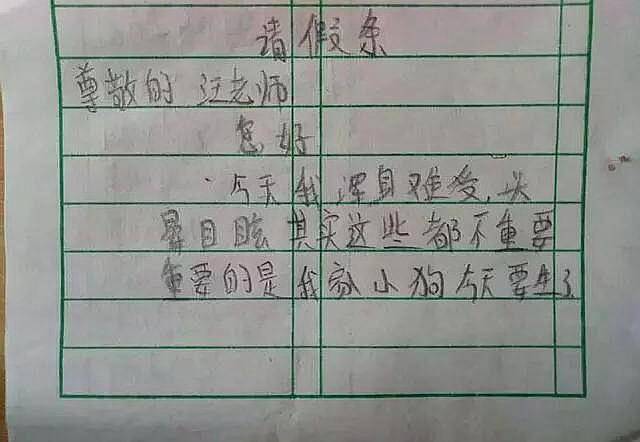 请假条
尊敬的 汪老师
您好
今天我浑身难受,头
晕目眩其实这些都不重要
重要的是我家小狗今天要生了